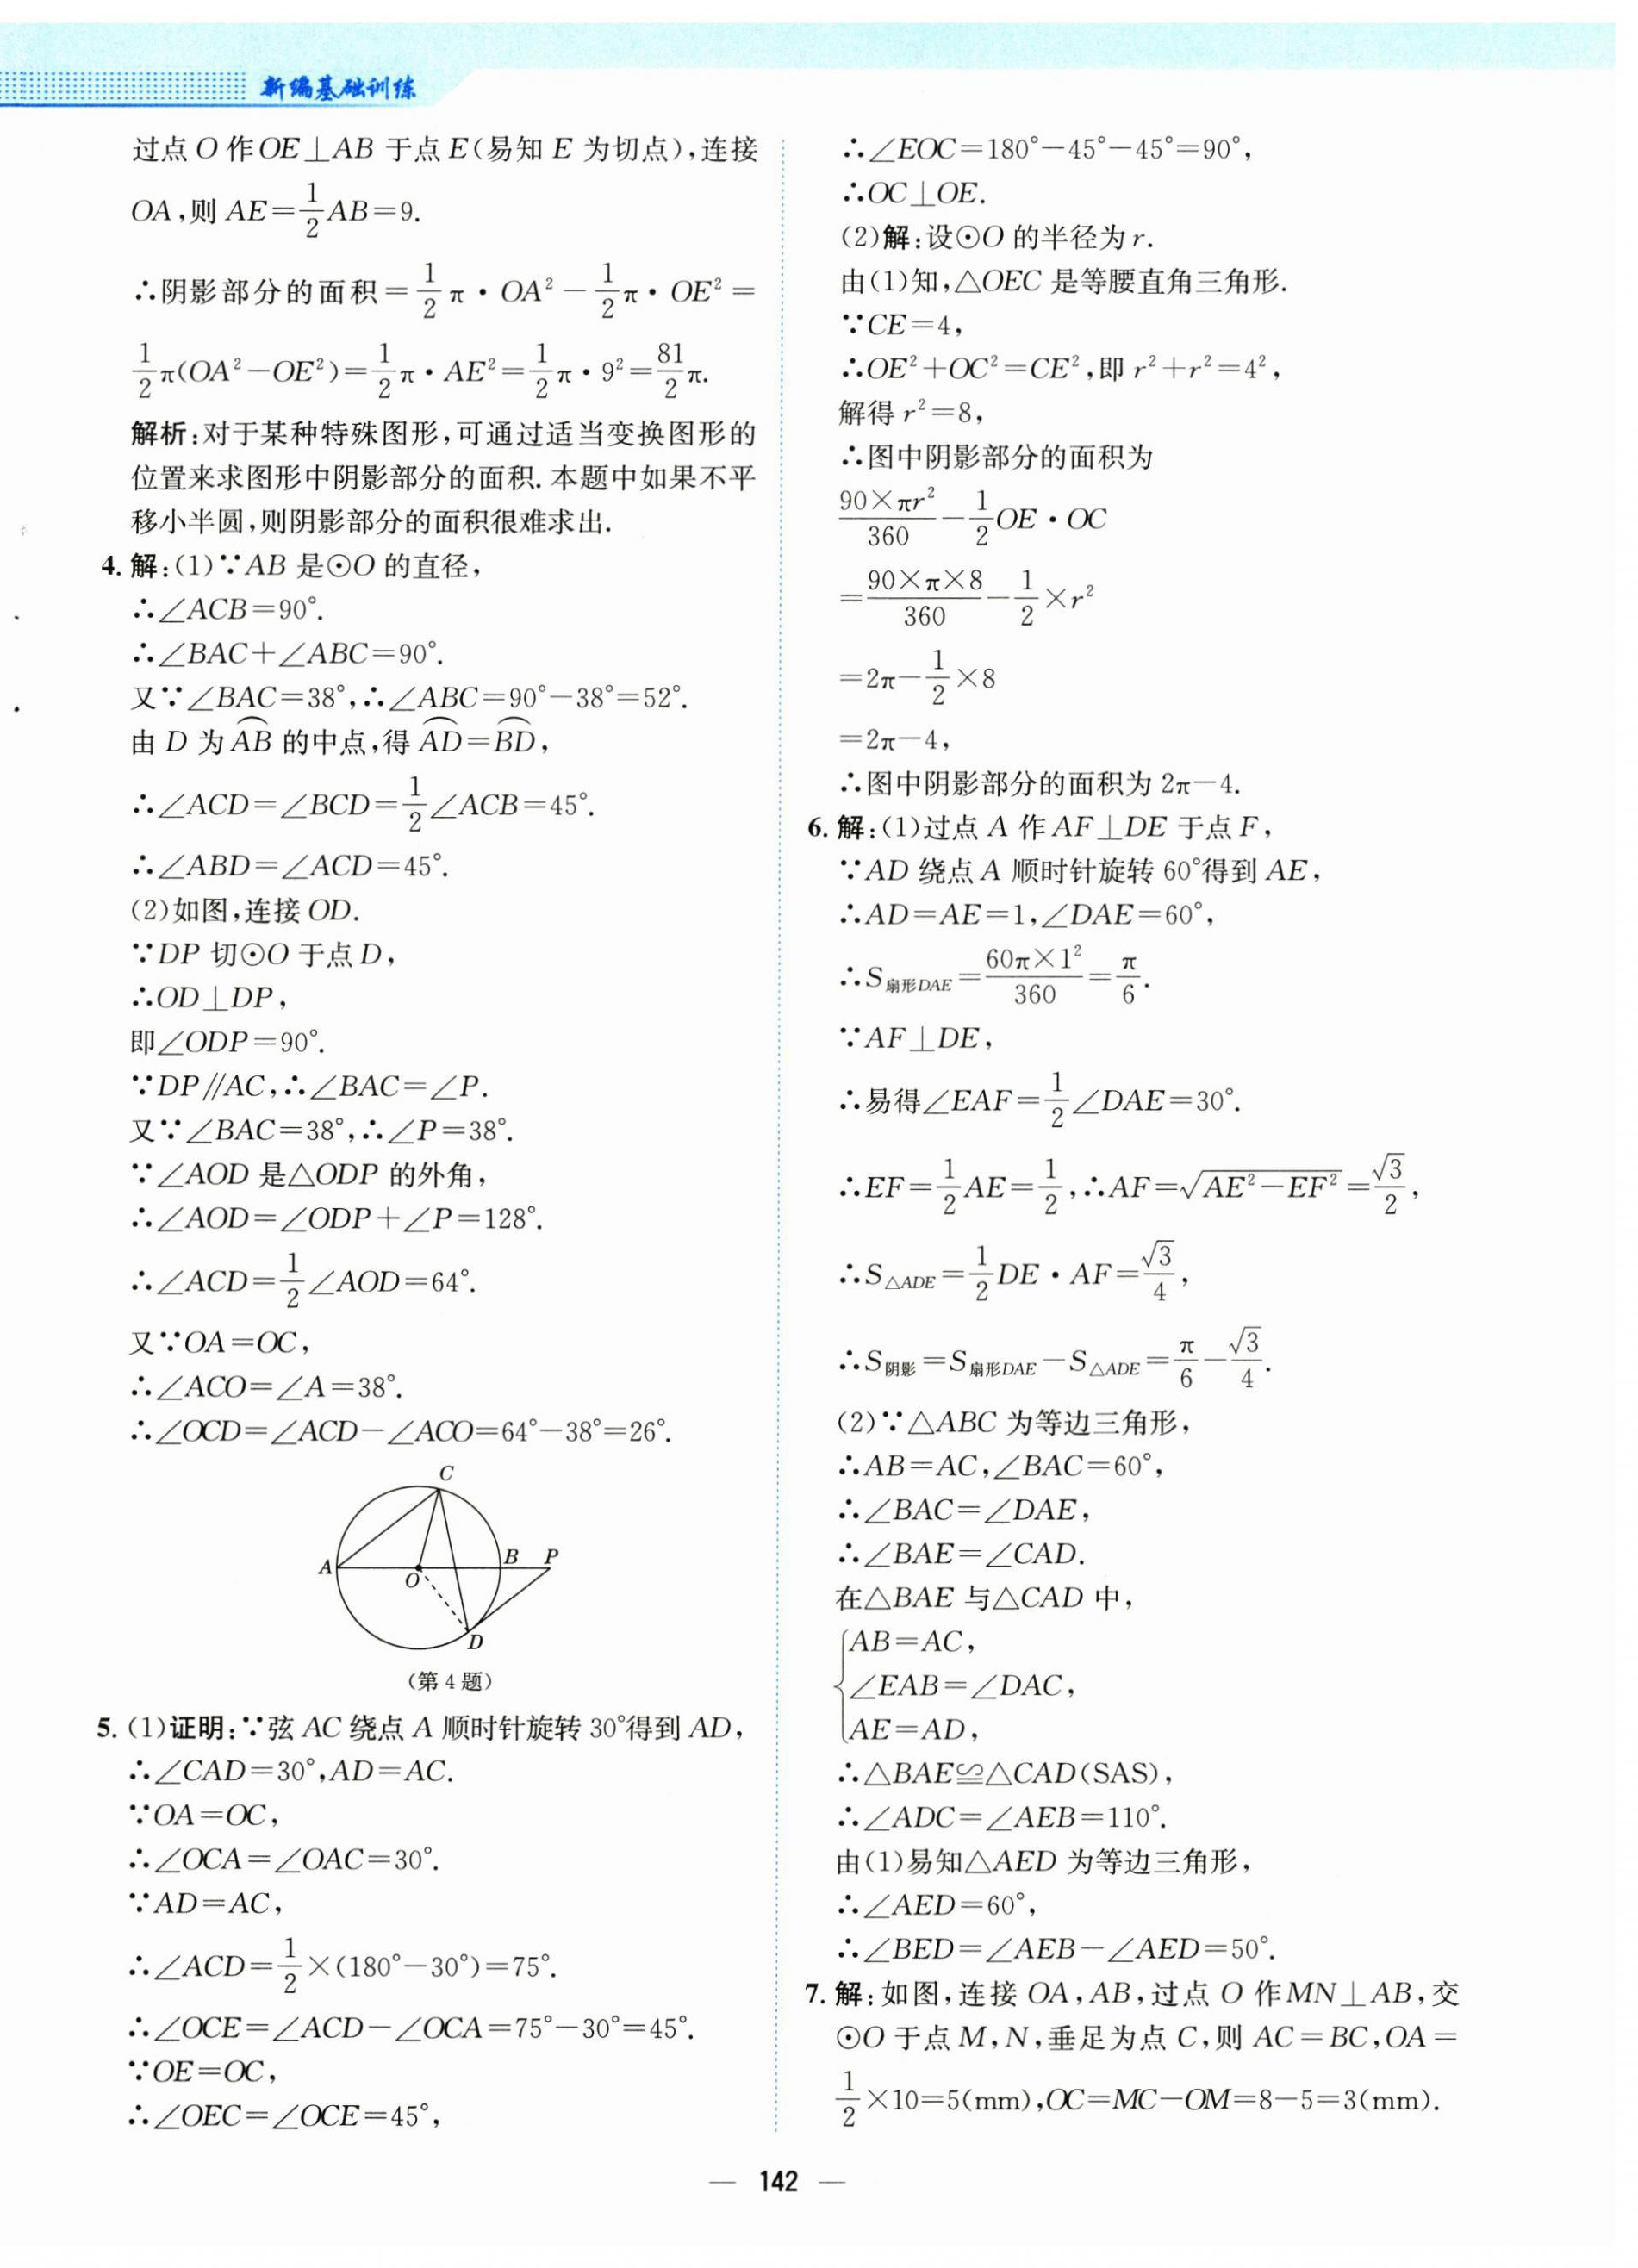 新编基础训练
过点O作OE⊥AB于点E(易知E为切点),连接
OA,则AE=1/2AB=9.
∴阴影部分的面积=1/2π·OA²-1/2π·OE²=
1/2π(OA²-OE²)=1/2π·AE²=1/2π·9²=81/2π.
解析:对于某种特殊图形,可通过适当变换图形的
位置来求图形中阴影部分的面积.本题中如果不平
移小半圆,则阴影部分的面积很难求出.
4.解:(1)∵AB是⊙O的直径,
∴∠ACB=90°.
∴∠BAC+∠ABC=90°.
又∵∠BAC=38°,∴∠ABC=90°-38°=52°.
由D为⌒AB的中点,得⌒AD=⌒BD,
∴∠ACD=∠BCD=1/2∠ACB=45°.
∴∠ABD=∠ACD=45°.
(2)如图,连接OD.
∵DP切⊙O于点D,
∴OD⊥DP,
即∠ODP=90°.
∵DP∥AC,∴∠BAC=∠P.
又∵∠BAC=38°,∴∠P=38°.
∵∠AOD是△ODP的外角,
∴∠AOD=∠ODP+∠P=128°.
∴∠ACD=1/2∠AOD=64°.
又∵OA=OC,
∴∠ACO=∠A=38°.
∴∠OCD=∠ACD-∠ACO=64°-38°=26°.
C
A
O
B
P
D
(第4题)
5.(1)证明:∵弦AC绕点A顺时针旋转30°得到AD,
∴∠CAD=30°,AD=AC.
∵OA=OC,
∴∠OCA=∠OAC=30°.
∵AD=AC,
∴∠ACD=1/2×(180°-30°)=75°.
∴∠OCE=∠ACD-∠OCA=75°-30°=45°.
∵OE=OC,
∴∠OEC=∠OCE=45°,
∴∠EOC=180°-45°-45°=90°,
∴OC⊥OE.
(2)解:设⊙O的半径为r.
由(1)知,△OEC是等腰直角三角形.
∵CE=4,
∴OE²+OC²=CE²,即r²+r²=4²,
解得r²=8,
∴图中阴影部分的面积为
90×πr²/360-1/2OE·OC
=90×π×8/360-1/2×r²
=2π-1/2×8
=2π-4,
∴图中阴影部分的面积为2π-4.
6.解:(1)过点A作AF⊥DE于点F,
∵AD绕点A顺时针旋转60°得到AE,
∴AD=AE=1,∠DAE=60°,
∴S扇形DAE=60π×1²/360=π/6.
∵AF⊥DE,
∴易得∠EAF=1/2∠DAE=30°.
∴EF=1/2AE=1/2,∴AF=√(AE²-EF²)=√3/2,
∴S△ADE=1/2DE·AF=√3/4,
∴S阴影=S扇形DAE-S△ADE=π/6-√3/4.
(2)∵△ABC为等边三角形,
∴AB=AC,∠BAC=60°,
∴∠BAC=∠DAE,
∴∠BAE=∠CAD.
在△BAE与△CAD中,
{AB=AC,
∠EAB=∠DAC,
AE=AD,
∴△BAE≌△CAD(SAS),
∴∠ADC=∠AEB=110°.
由(1)易知△AED为等边三角形,
∴∠AED=60°,
∴∠BED=∠AEB-∠AED=50°.
7.解:如图,连接OA,AB,过点O作MN⊥AB,交
⊙O于点M,N,垂足为点C,则AC=BC,OA=
1/2×10=5(mm),OC=MC-OM=8-5=3(mm).
— 142 —